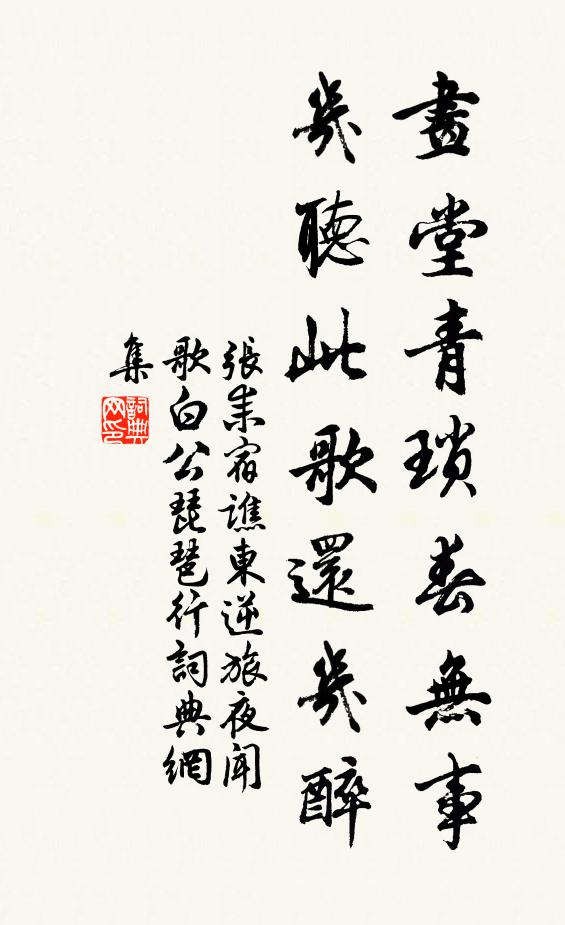 畫堂青瑣春無事
幾聽此歌還幾醉
張耒宿譙東逆旅夜聞
歌白公琵琶行詞典網
集
詞典網印